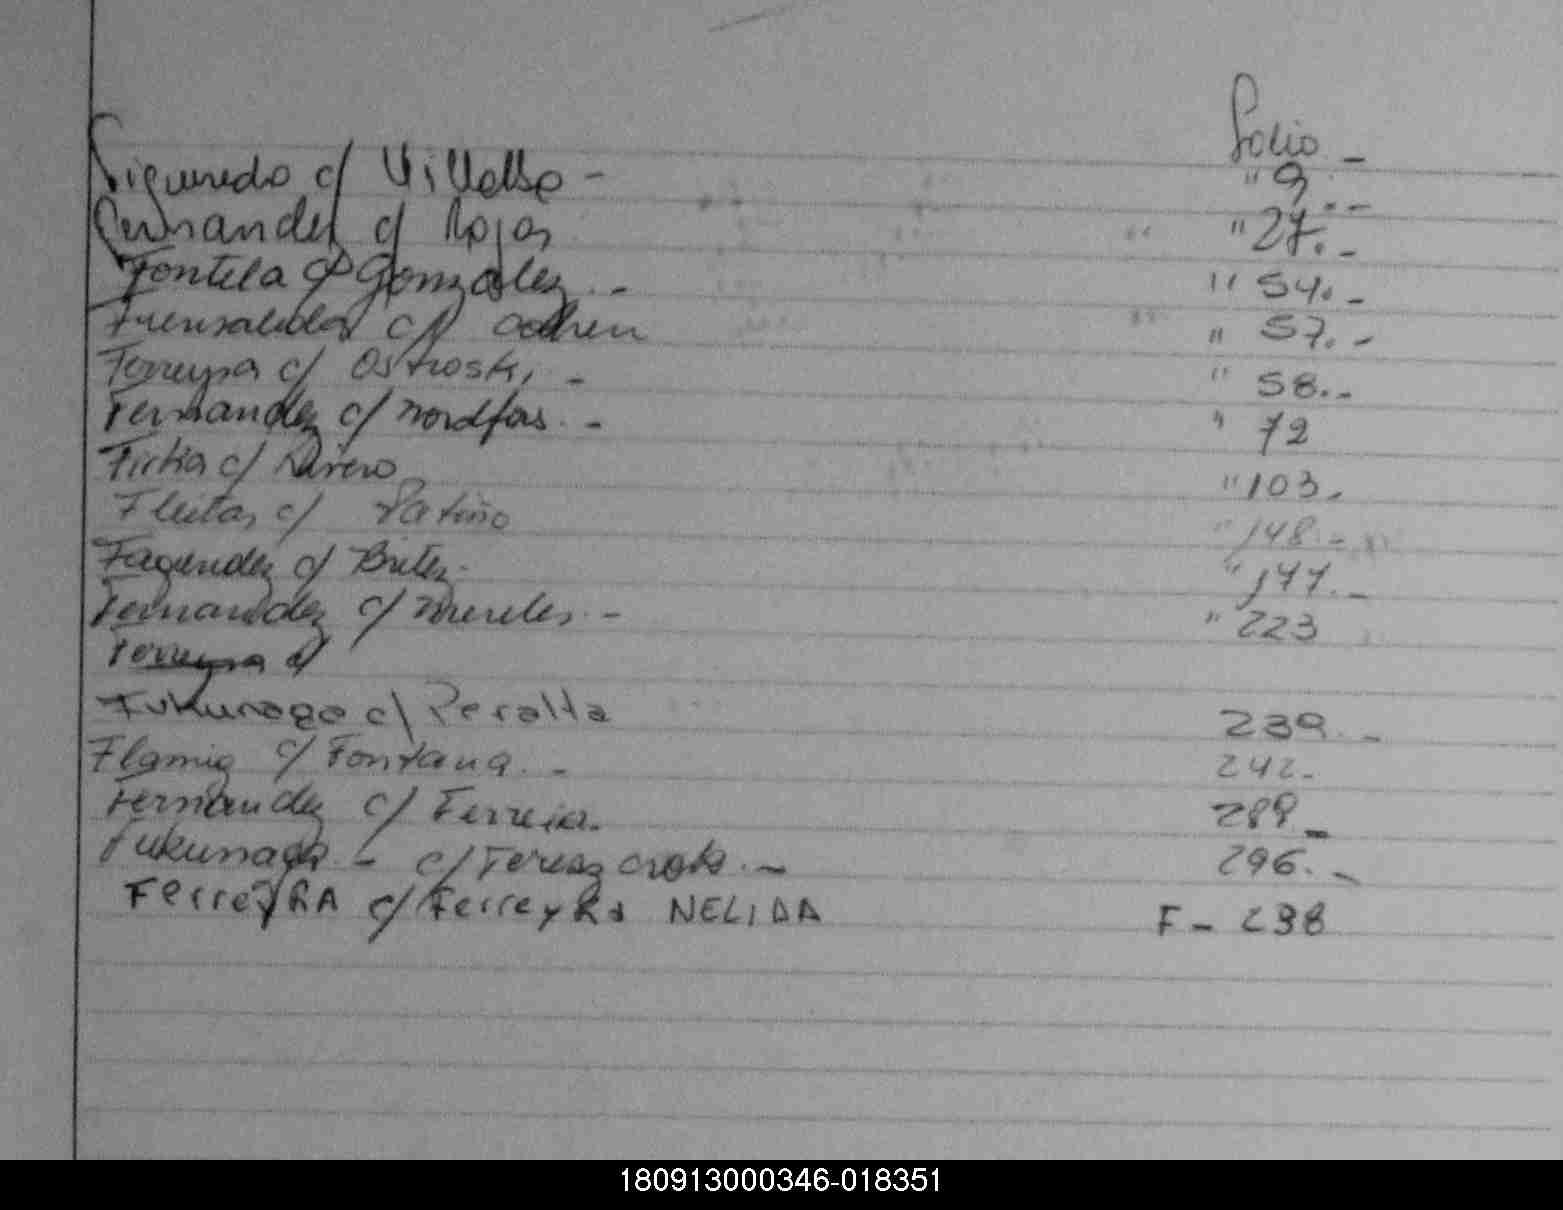 Folio. -
Figueredo c/ Villalba - " 9. -
Fernandez c/ Rojas " 27. -
Fontela c/ Gonzalez. - " 54. -
Fuensalida c/ " 57. -
Ferreyra c/ Ostroski, - " 58. -
Fernandez c/ . - " 72
c/ Rivero " 103.
Fleitas c/ Patiño " 148. -
Fagundez c/ Britez. " 177. -
Fernandez c/ Mereles. - " 223
Ferreyra c/
Fukunago c/ Peralta 239. -
Flamig c/ Fontana. - 242.
Fernandez c/ Ferreira. 289 -
Fukunaga. - c/ . - 296. -
FerreyRA c/ FerreyRa NELIDA F - 298
180913000346-018351